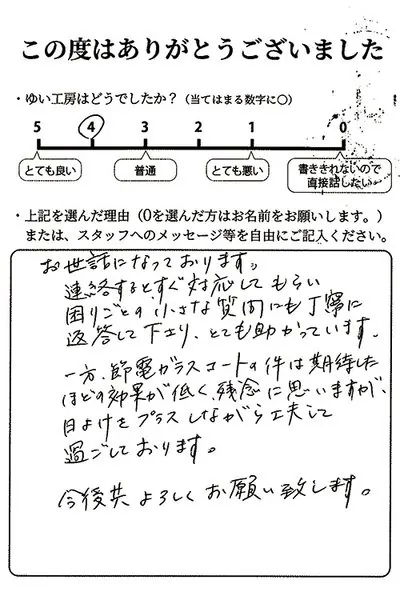 この度はありがとうございました
・ゆい工房はどうでしたか？（当てはまる数字に○）
5 4 3 2 1 0
とても良い 普通 とても悪い 書ききれないので
直接話したい
・上記を選んだ理由（0を選んだ方はお名前をお願いします。）
または、スタッフへのメッセージ等を自由にご記入ください。
お世話になっております。
連絡するとすぐ対応してもらい
困りごとの小さな質問にも丁寧に
返答して下さり、とても助かっています。
一方、節電ガラスコートの件は期待した
ほどの効果が低く、残念に思いますが、
日よけをプラスしながら工夫して
過ごしております。
今後共よろしくお願い致します。